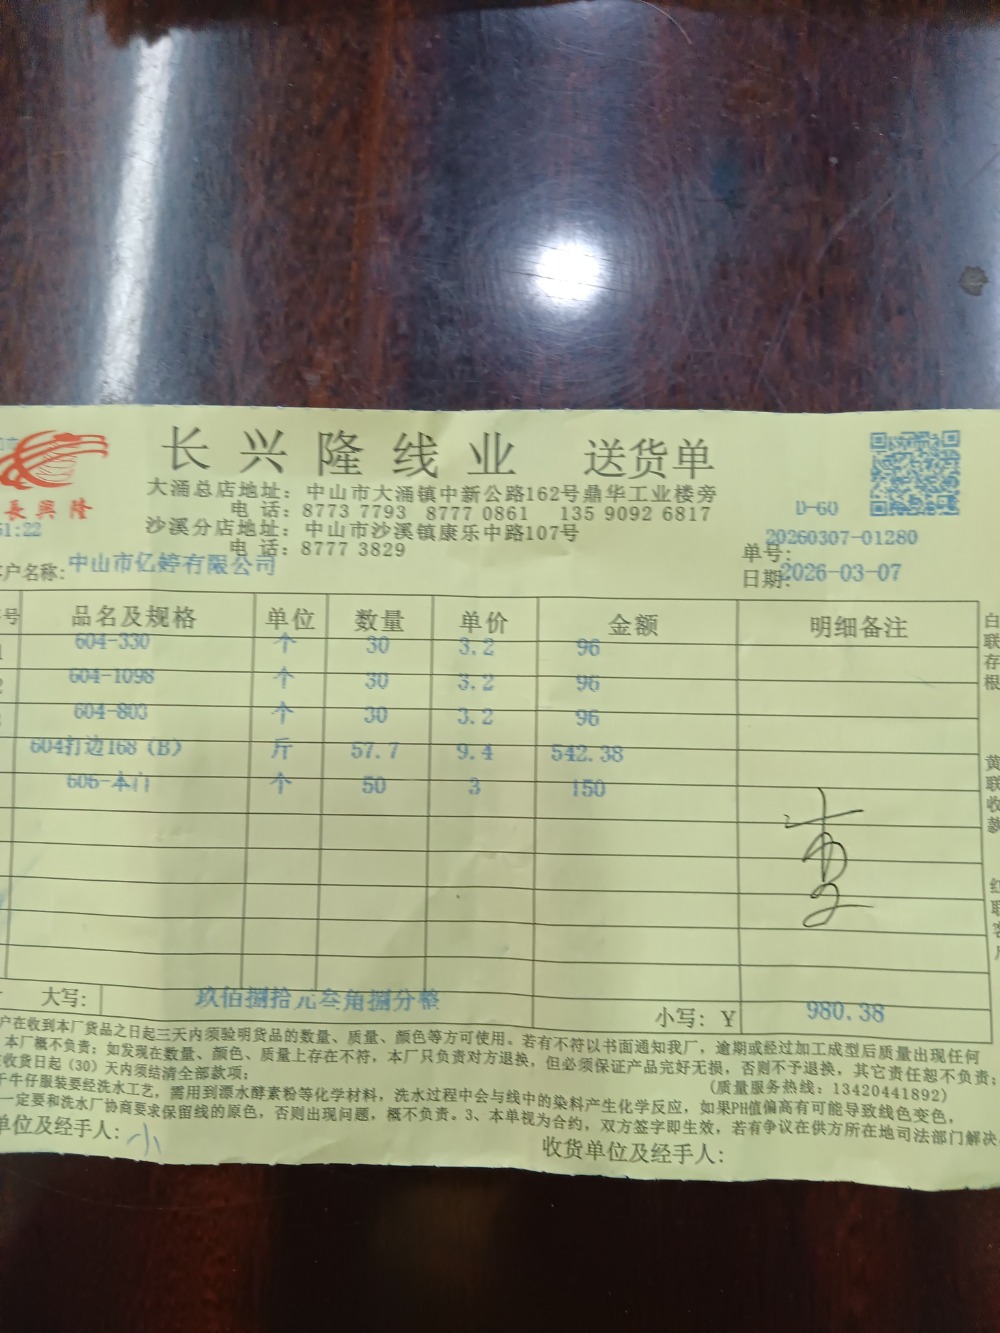 长兴隆线业 送货单
大涌总店地址：中山市大涌镇中新公路162号鼎华工业楼旁
电 话：8773 7793 8777 0861 135 9092 6817
沙溪分店地址：中山市沙溪镇康乐中路107号
电 话：8777 3829
長興隆
51:22
D-60
单号：20260307-01280
户名称：中山市亿婷有限公司
日期：2026-03-07
号 品名及规格 单位 数量 单价 金额 明细备注
1 604-330 个 30 3.2 96
2 604-1098 个 30 3.2 96
604-803 个 30 3.2 96
604打边168（B） 斤 57.7 9.4 542.38
606-本门 个 50 3 150
大写： 玖佰捌拾元叁角捌分整 小写：￥ 980.38
白联存根
黄联收款
红联客
户在收到本厂货品之日起三天内须验明货品的数量、质量、颜色等方可使用。若有不符以书面通知我厂，逾期或经过加工成型后质量出现任何
本厂概不负责；如发现在数量、颜色、质量上存在不符，本厂只负责对方退换，但必须保证产品完好无损，否则不予退换，其它责任恕不负责；
收货日起（30）天内须结清全部款项； （质量服务热线：13420441892）
牛仔服装要经洗水工艺，需用到漂水酵素粉等化学材料，洗水过程中会与线中的染料产生化学反应，如果PH值偏高有可能导致线色变色，
一定要和洗水厂协商要求保留线的原色，否则出现问题，概不负责。3、本单视为合约，双方签字即生效，若有争议在供方所在地司法部门解决
单位及经手人：小
收货单位及经手人：